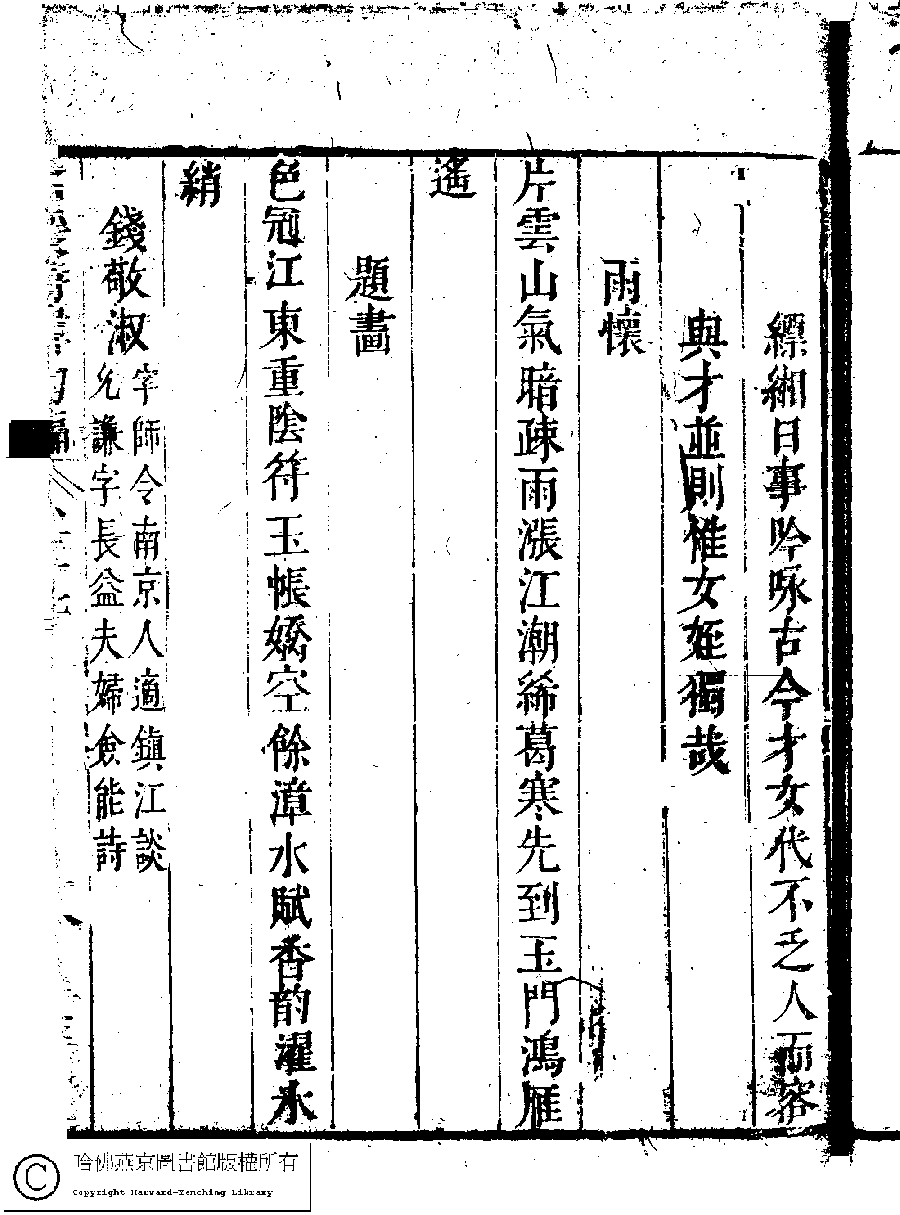 縹緗日事吟咏古今才女代不乏人而容
與才並則惟女姪獨哉
雨懷
片雲山氣暗疎雨漲江潮絺葛寒先到玉門鴻雁
遙
題畫
色冠江東重陰符玉帳嬌空餘漳水賦香韵濯氷
綃
錢敬淑
字師令南京人適鎮江談
允謙字長益夫婦僉能詩
哈佛燕京圖書館版權所有
Copyright Harvard-Yenching Library